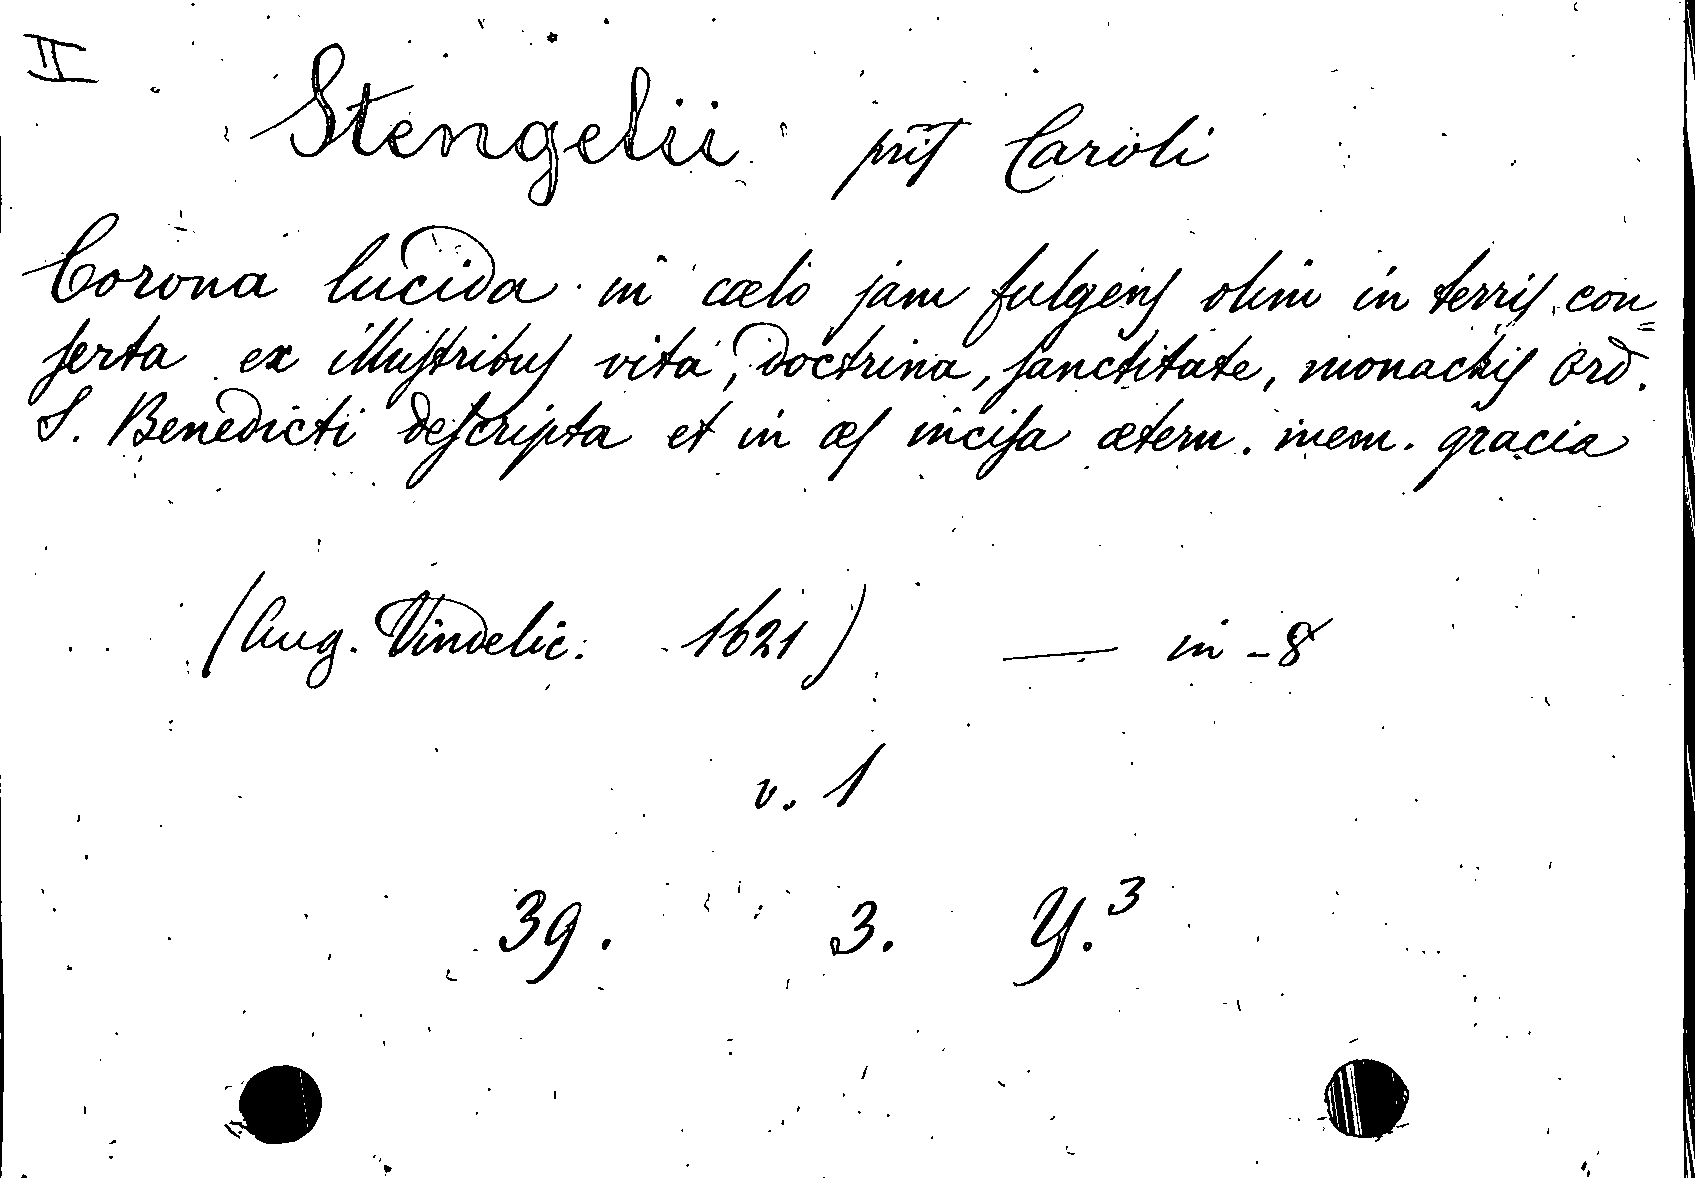 II
Stengelii prīs Caroli
Corona lucida in cœlo jam fulgens olim in terris con=
serta ex illustribus vita, doctrina, sanctitate, monachis Ord.
S. Benedicti descripta et in æs incisa ætern. mem. gracia
(Aug. Vindelic. 1621) — in-8
v. 1
39. 3. Y.³